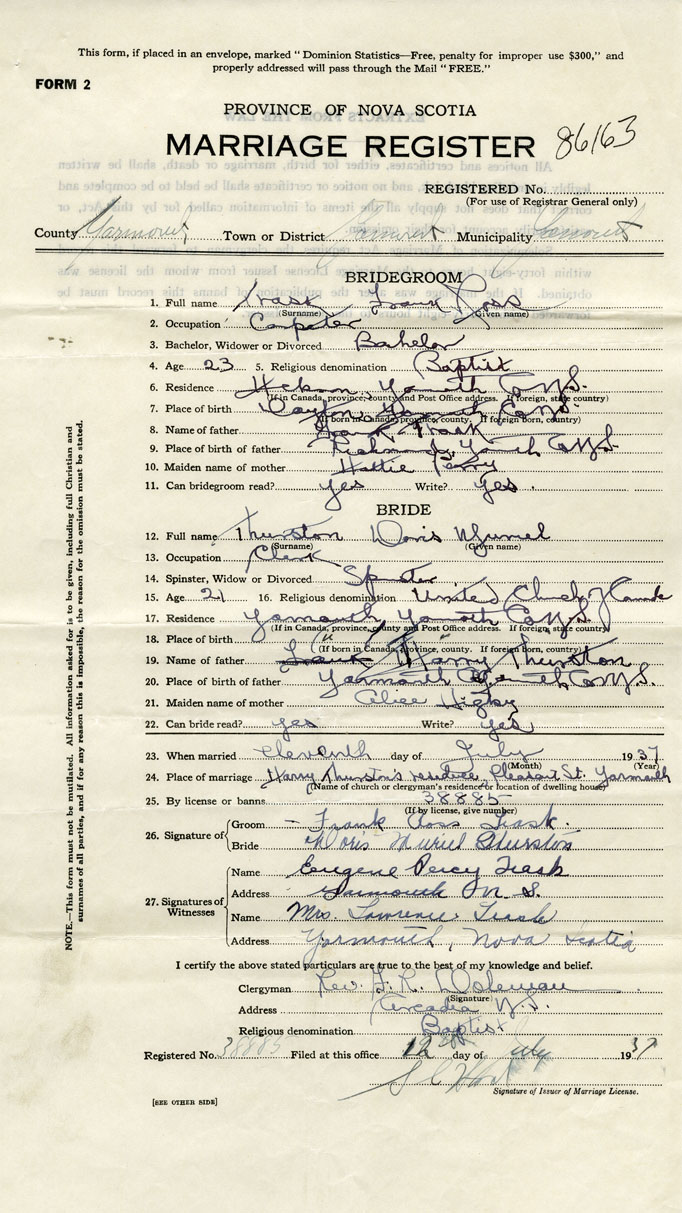 This form, if placed in an envelope, marked "Dominion Statistics—Free, penalty for improper use $300," and
properly addressed will pass through the Mail "FREE."
FORM 2
PROVINCE OF NOVA SCOTIA
MARRIAGE REGISTER 86163
REGISTERED No.
(For use of Registrar General only)
County Yarmouth Town or District Municipality Yarmouth
BRIDEGROOM
1. Full name Trask Frank Ross
(Surname) (Given name)
2. Occupation Carpenter
3. Bachelor, Widower or Divorced Bachelor
4. Age 23 5. Religious denomination Baptist
6. Residence Hebron, Yarmouth Co. N.S.
(If in Canada, province, county and Post Office address. If foreign, state country)
7. Place of birth Dayton, Yarmouth Co. N.S.
(If born in Canada, province, county. If foreign born, country)
8. Name of father Frank Trask
9. Place of birth of father Richmond, Yarmouth Co. N.S.
10. Maiden name of mother Hattie Perry
11. Can bridegroom read? yes Write? yes.
BRIDE
12. Full name Thurston Doris Muriel
(Surname) (Given name)
13. Occupation Clerk
14. Spinster, Widow or Divorced Spinster
15. Age 21 16. Religious denomination United Church of Canada
17. Residence Yarmouth Yarmouth Co. N.S.
(If in Canada, province, county and Post Office address. If foreign, state country)
18. Place of birth " "
(If born in Canada, province, county. If foreign born, country)
19. Name of father Frank Harry Thurston
20. Place of birth of father Yarmouth Yarmouth Co. N.S.
21. Maiden name of mother Alice Higby
22. Can bride read? yes Write? yes
23. When married eleventh day of July 1937
(Month) (Year)
24. Place of marriage Harry Thurston's residence, Pleasant St. Yarmouth
(Name of church or clergyman's residence or location of dwelling house)
25. By license or banns 38885
(If by license, give number)
26. Signature of Groom Frank Ross Trask.
Bride Doris Muriel Thurston
27. Signatures of Witnesses
Name Eugene Percy Trask
Address Yarmouth N. S.
Name Mrs. Lawrence Trask
Address Yarmouth, Nova Scotia
I certify the above stated particulars are true to the best of my knowledge and belief.
Clergyman Rev.
(Signature)
Address Arcadia N.S.
Religious denomination Baptist
Registered No. 38885 Filed at this office 12 day of July 1937
Signature of Issuer of Marriage License.
[SEE OTHER SIDE]
NOTE.—This form must not be mutilated. All information asked for is to be given, including full Christian and
surnames of all parties, and if for any reason this is impossible, the reason for the omission must be stated.